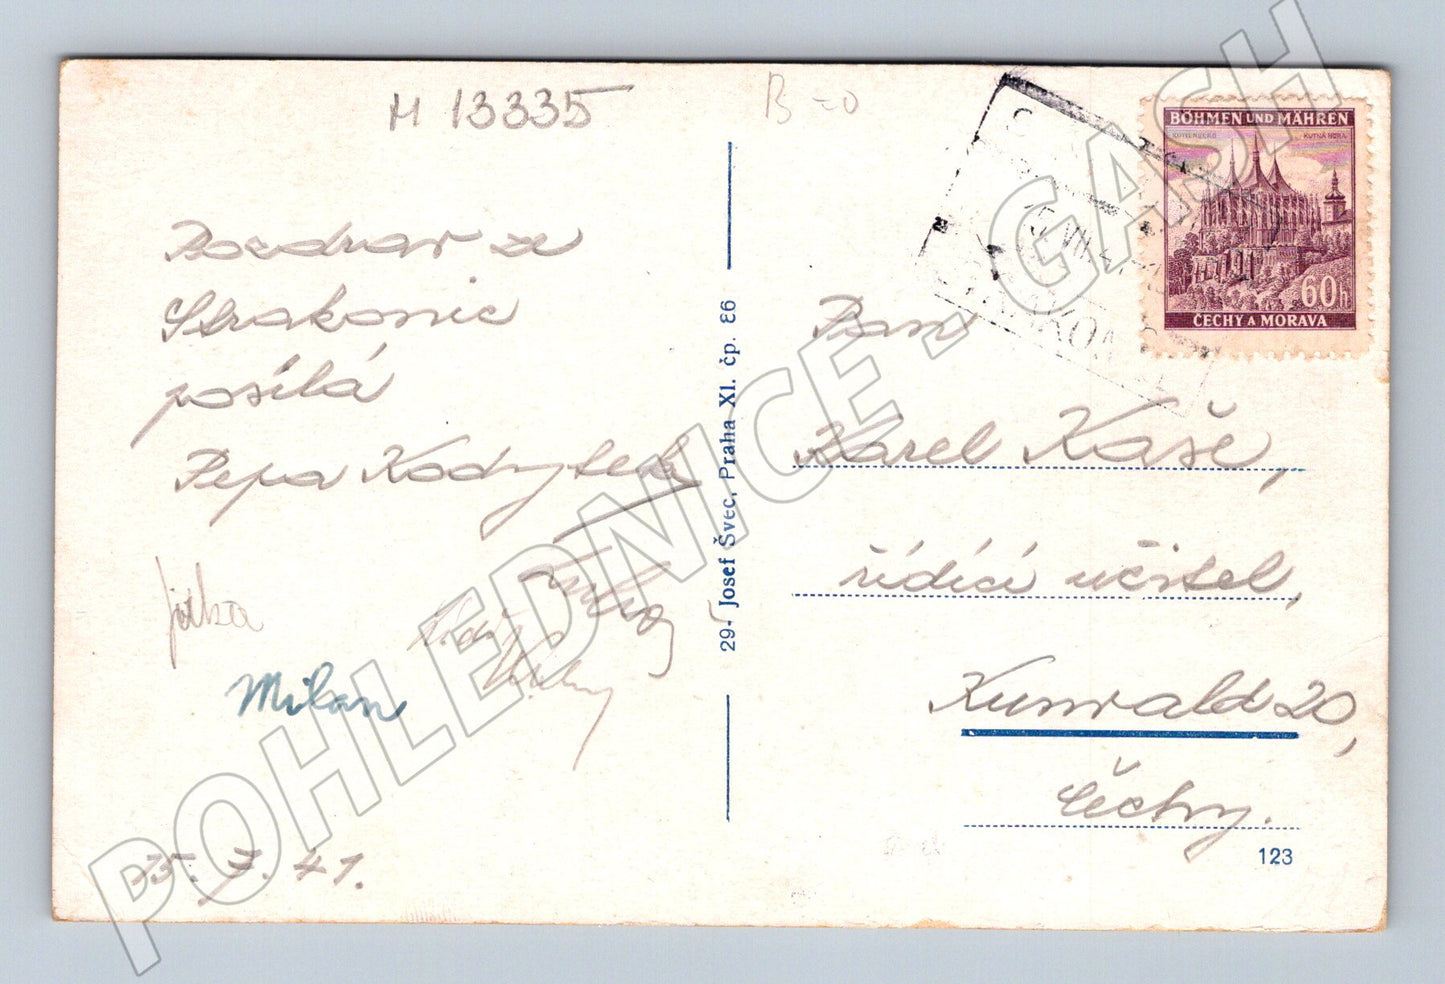 M 13335
B =0
Pozdrav ze
Strakonic
posílá
Pepa Kodrytek
Jitka
Milan
15. 7. 41.
29- Josef Švec, Praha XI. čp. 86
BÖHMEN UND MÄHREN
KUTTENBERG KUTNÁ HORA
60h
ČECHY A MORAVA
Pan
Karel Kaše,
řídící učitel,
Kunvald 20,
Čechy.
123
POHLEDNICE - GASH